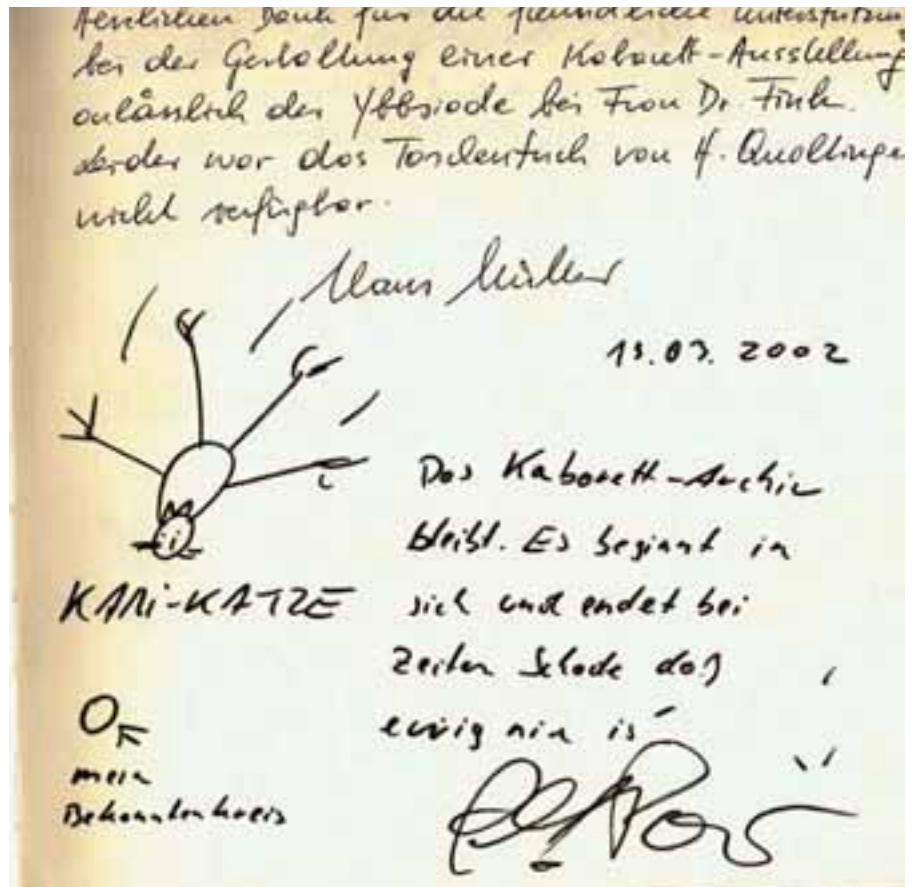 Herzlichen Dank für die freundliche Unterstützung
bei der Gestaltung einer Kabarett-Ausstellung
anlässlich der Ybbsiade bei Frau Dr. Fink.
Leider war das Taschentuch von H. Qualtinger
nicht verfügbar.
Klaus
13.03. 2002
Das Kabarett-Archiv
bleibt. Es beginnt in
sich und endet bei
Zeiten Schade daß
ewig nix is
KARi-KATZE
mein
Bekanntenkreis